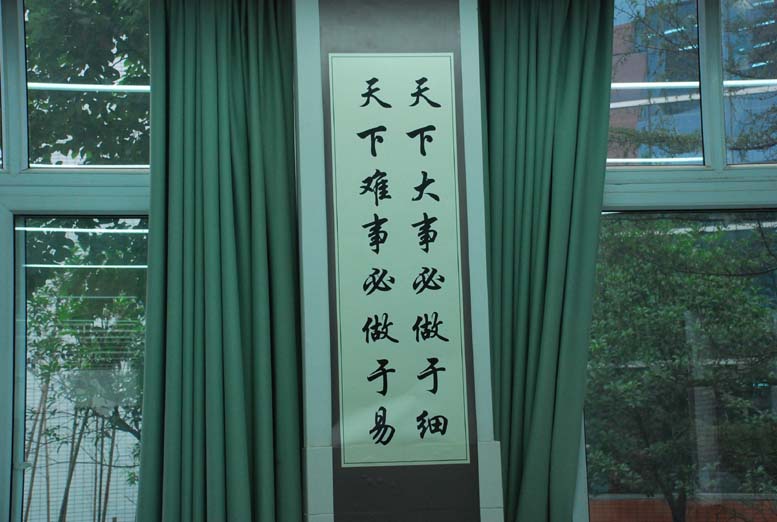 天下大事必做于细
天下难事必做于易